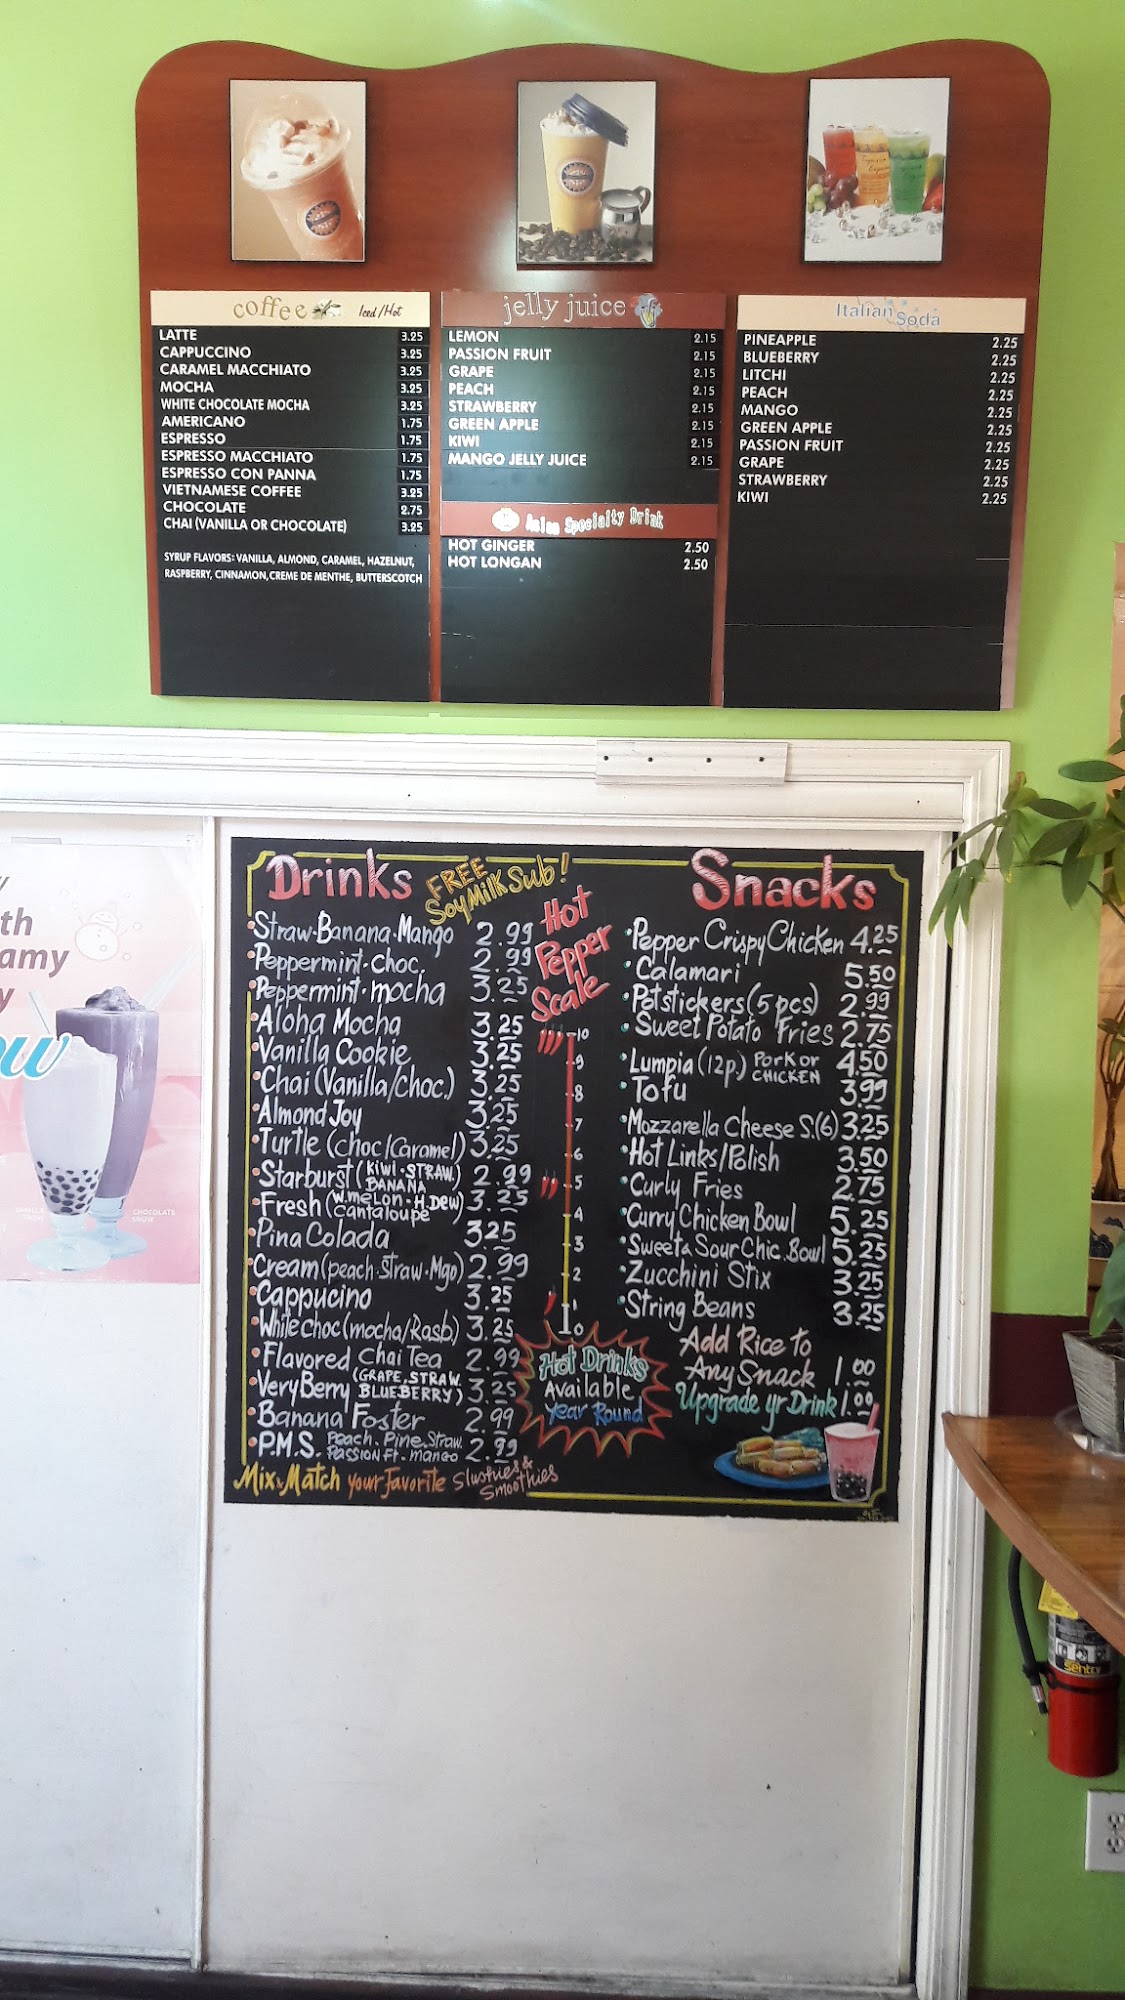 coffee Iced/Hot
LATTE 3.25
CAPPUCCINO 3.25
CARAMEL MACCHIATO 3.25
MOCHA 3.25
WHITE CHOCOLATE MOCHA 3.25
AMERICANO 1.75
ESPRESSO 1.75
ESPRESSO MACCHIATO 1.75
ESPRESSO CON PANNA 1.75
VIETNAMESE COFFEE 3.25
CHOCOLATE 2.75
CHAI (VANILLA OR CHOCOLATE) 3.25
SYRUP FLAVORS: VANILLA, ALMOND, CARAMEL, HAZELNUT,
RASPBERRY, CINNAMON, CREME DE MENTHE, BUTTERSCOTCH
jelly juice
LEMON 2.15
PASSION FRUIT 2.15
GRAPE 2.15
PEACH 2.15
STRAWBERRY 2.15
GREEN APPLE 2.15
KIWI 2.15
MANGO JELLY JUICE 2.15
Asian Specialty Drink
HOT GINGER 2.50
HOT LONGAN 2.50
Italian Soda
PINEAPPLE 2.25
BLUEBERRY 2.25
LITCHI 2.25
PEACH 2.25
MANGO 2.25
GREEN APPLE 2.25
PASSION FRUIT 2.25
GRAPE 2.25
STRAWBERRY 2.25
KIWI 2.25
Drinks
FREE
Soy Milk Sub!
Straw-Banana-Mango 2.99
Peppermint-choc. 2.99
Peppermint-mocha 3.25
Aloha Mocha 3.25
Vanilla Cookie 3.25
Chai (Vanilla/choc.) 3.25
Almond Joy 3.25
Turtle (choc/Caramel) 3.25
Starburst (KIWI-STRAW. BANANA) 2.99
Fresh (W.melon-H.Dew) cantaloupe 3.25
Pina Colada 3.25
Cream (peach-straw-Mgo) 2.99
Cappucino 3.25
White choc (mocha/Rasb.) 3.25
Flavored Chai Tea 2.99
Very Berry (GRAPE, STRAW. BLUEBERRY) 3.25
Banana Foster 2.99
P.M.S. Peach. Pine. Straw. Passion Ft. mango 2.99
Mix & Match your favorite Slushies & Smoothies
Hot
Pepper
Scale
10
9
8
7
6
5
4
3
2
1
0
Hot Drinks
Available
Year Round
Snacks
Pepper Crispy Chicken 4.25
Calamari 5.50
Potstickers (5 pcs) 2.99
Sweet Potato Fries 2.75
Lumpia (12p.) Pork or CHICKEN 4.50
Tofu 3.99
Mozzarella Cheese S.(6) 3.25
Hot Links/Polish 3.50
Curly Fries 2.75
Curry Chicken Bowl 5.25
Sweet & Sour Chic. Bowl 5.25
Zucchini Stix 3.25
String Beans 3.25
Add Rice to
Any Snack 1.00
Upgrade yr Drink 1.00
CHOCOLATE
SNOW
Sentry